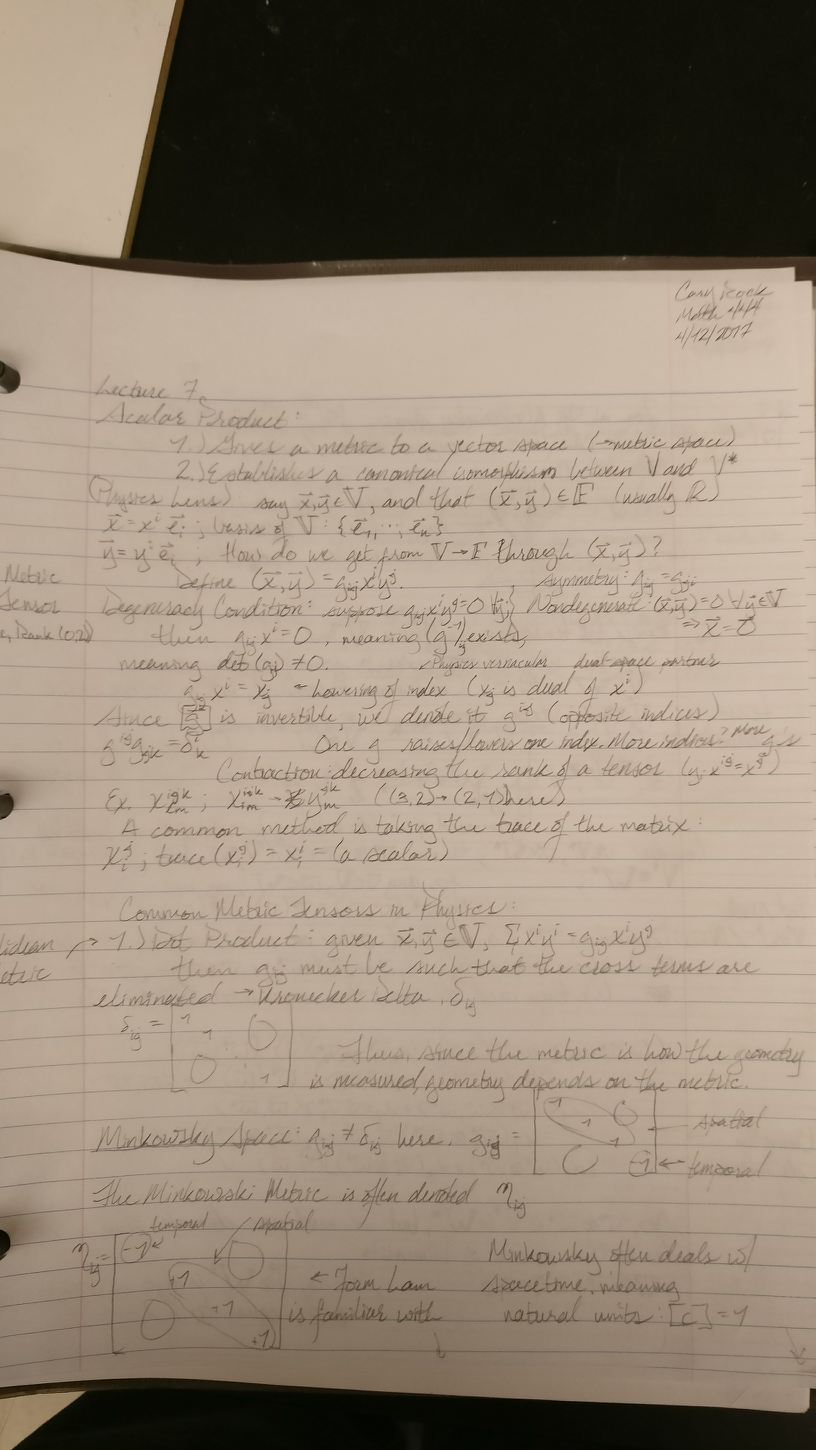 Math 444
4/12/2017
Lecture 7
Scalar Product:
1.) Gives a metric to a vector space (→metric space)
2.) Establishes a canonical isomorphism between V and V*
(Physics Lens) say x⃗,y⃗∈V, and that (x⃗,y⃗)∈F (usually R)
x⃗=xⁱe⃗ᵢ ; basis of V: {e⃗₁,...,e⃗ₙ}
y⃗=yⁱe⃗ᵢ ; How do we get from V→F through (x⃗,y⃗)?
Metric
Tensor
Rank (0,2)
Define (x⃗,y⃗)=gᵢⱼxⁱyʲ. , symmetry: gᵢⱼ=gⱼᵢ
Degeneracy Condition: suppose gᵢⱼxⁱyʲ=0 ∀yʲ} Nondegenerate: (x⃗,y⃗)=0 ∀y⃗∈V
then gᵢⱼxⁱ=0, meaning (g⁻¹)ᵢⱼ exists, ⇒x⃗=0⃗
meaning det(gᵢⱼ)≠0. Physics vernacular dual space partner
gᵢⱼxⁱ=xⱼ ← Lowering of index (xⱼ is dual of xⁱ)
Since [g] is invertible, we denote it gⁱʲ (opposite indices)
gⁱʲgⱼₖ=δⁱₖ One g raises/lowers one index. More indices? More g's
Contraction: decreasing the rank of a tensor (yⱼxⁱʲ=xⁱ)
Ex. ; ((3,2)→(2,1) here)
A common method is taking the trace of the matrix:
xᵢʲ ; trace(xᵢʲ)=xᵢⁱ=(a scalar)
Common Metric Tensors in Physics:
lidean
etric
→ 1.) Dot Product: given x⃗,y⃗∈V, Σxⁱyⁱ=gᵢⱼxⁱyʲ
then gᵢⱼ must be such that the cross terms are
eliminated → Kronecker Delta, δᵢⱼ
δᵢⱼ= [1 1 0 0 1]
Thus, since the metric is how the geometry
is measured, geometry depends on the metric.
Minkowsky Space: gᵢⱼ≠δᵢⱼ here. gᵢⱼ= [1 1 1 0 0 -1] — spatial
← temporal
The Minkowski Metric is often denoted ηᵢⱼ
temporal spatial
ηᵢⱼ= [-1 +1 +1 +1 0 0]
← Form I am
is familiar with
Minkowsky often deals w/
spacetime, meaning
natural units: [c]=1